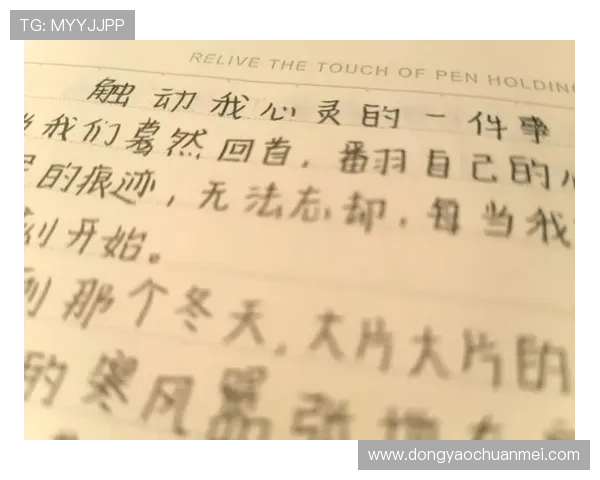 TG: MYYJJPP
RELIVE THE TOUCH OF PEN HOLDING
触动我心灵的一件事
我们蓦然回首，番羽自己的心
的痕迹，无法忘却，每当我
刻开始。
到那个冬天，大片大片的
的寒风嚣张地在
www.dongyaochuanmei.com